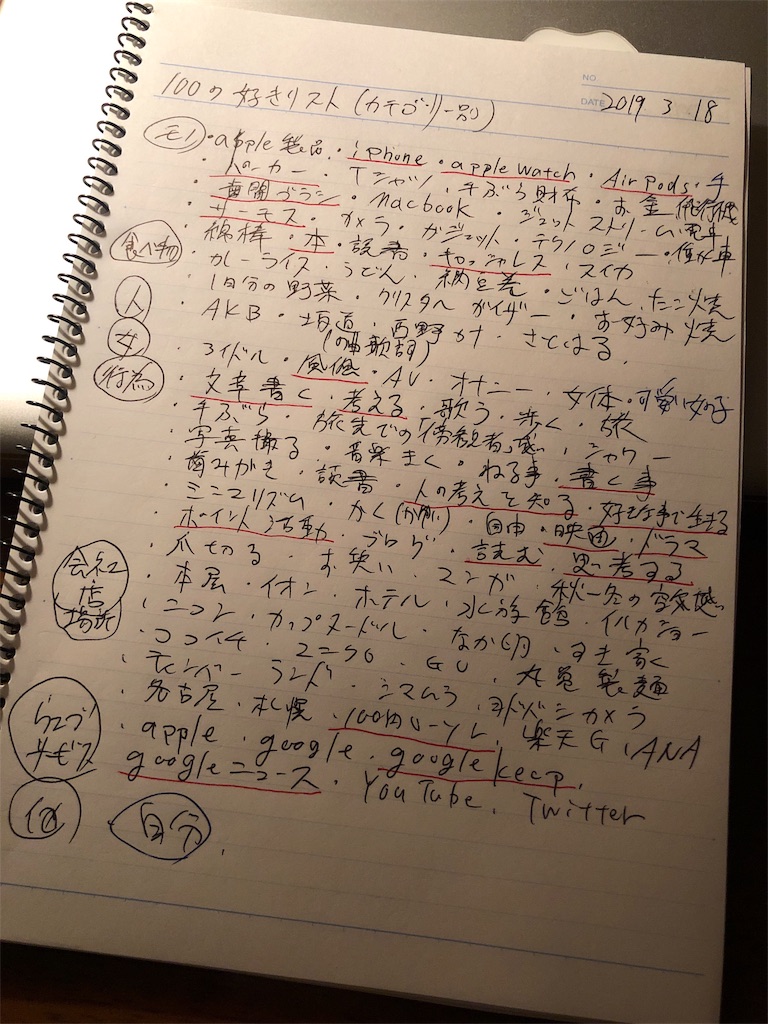 NO.
DATE 2019 3 18
100の好きリスト(カテゴリー別)
モノ ・apple製品・iphone・apple watch・Air Pods・手
・パーカー・Tシャツ・手ぶら財布・お金 飛行機
・歯間ブラシ・Macbook・ジェットストリーム 電車
・サーモス・カメラ・ガジェット・テクノロジー・
・綿棒・本・読書・キャッシャレス・スイカ
食べ物 ・カレーライス・うどん・納豆巻・ごはん たこ焼
・1日分の野菜・クリスタルガイザー・お好み焼
人 ・AKB・坂道・西野カナ・さとはる
(の曲歌詞)
女 ・アイドル・風俗・AV・オナニー・女体・可愛い女の子
行為 ・文章書く・考える・歌う・歩く・旅
・手ぶら・旅先での傍観者感・シャワー
・写真撮る・音楽きく・ねる事・書く事
・歯みがき・読書・人の考えを知る・好きな事で生きる
・ミニマリズム・かく・自由・映画・ドラマ
・ポイント活動・ブログ・読む・思考する
・爪切る・お笑い・マンガ・秋〜冬の空気感
会社 店 場所 ・本屋・イオン・ホテル・水族館・イルカショー
・ニコン・カップヌードル・なか卯・すき家
・ココイチ・ユニクロ・GU・丸亀製麺
・ティンバーランド・シマムラ・ヨドバシカメラ
・名古屋・札幌・100円ローソン・楽天G・ANA
ウェブサービス ・apple・google・google keep
・googleニュース・YouTube・Twitter
他 自分